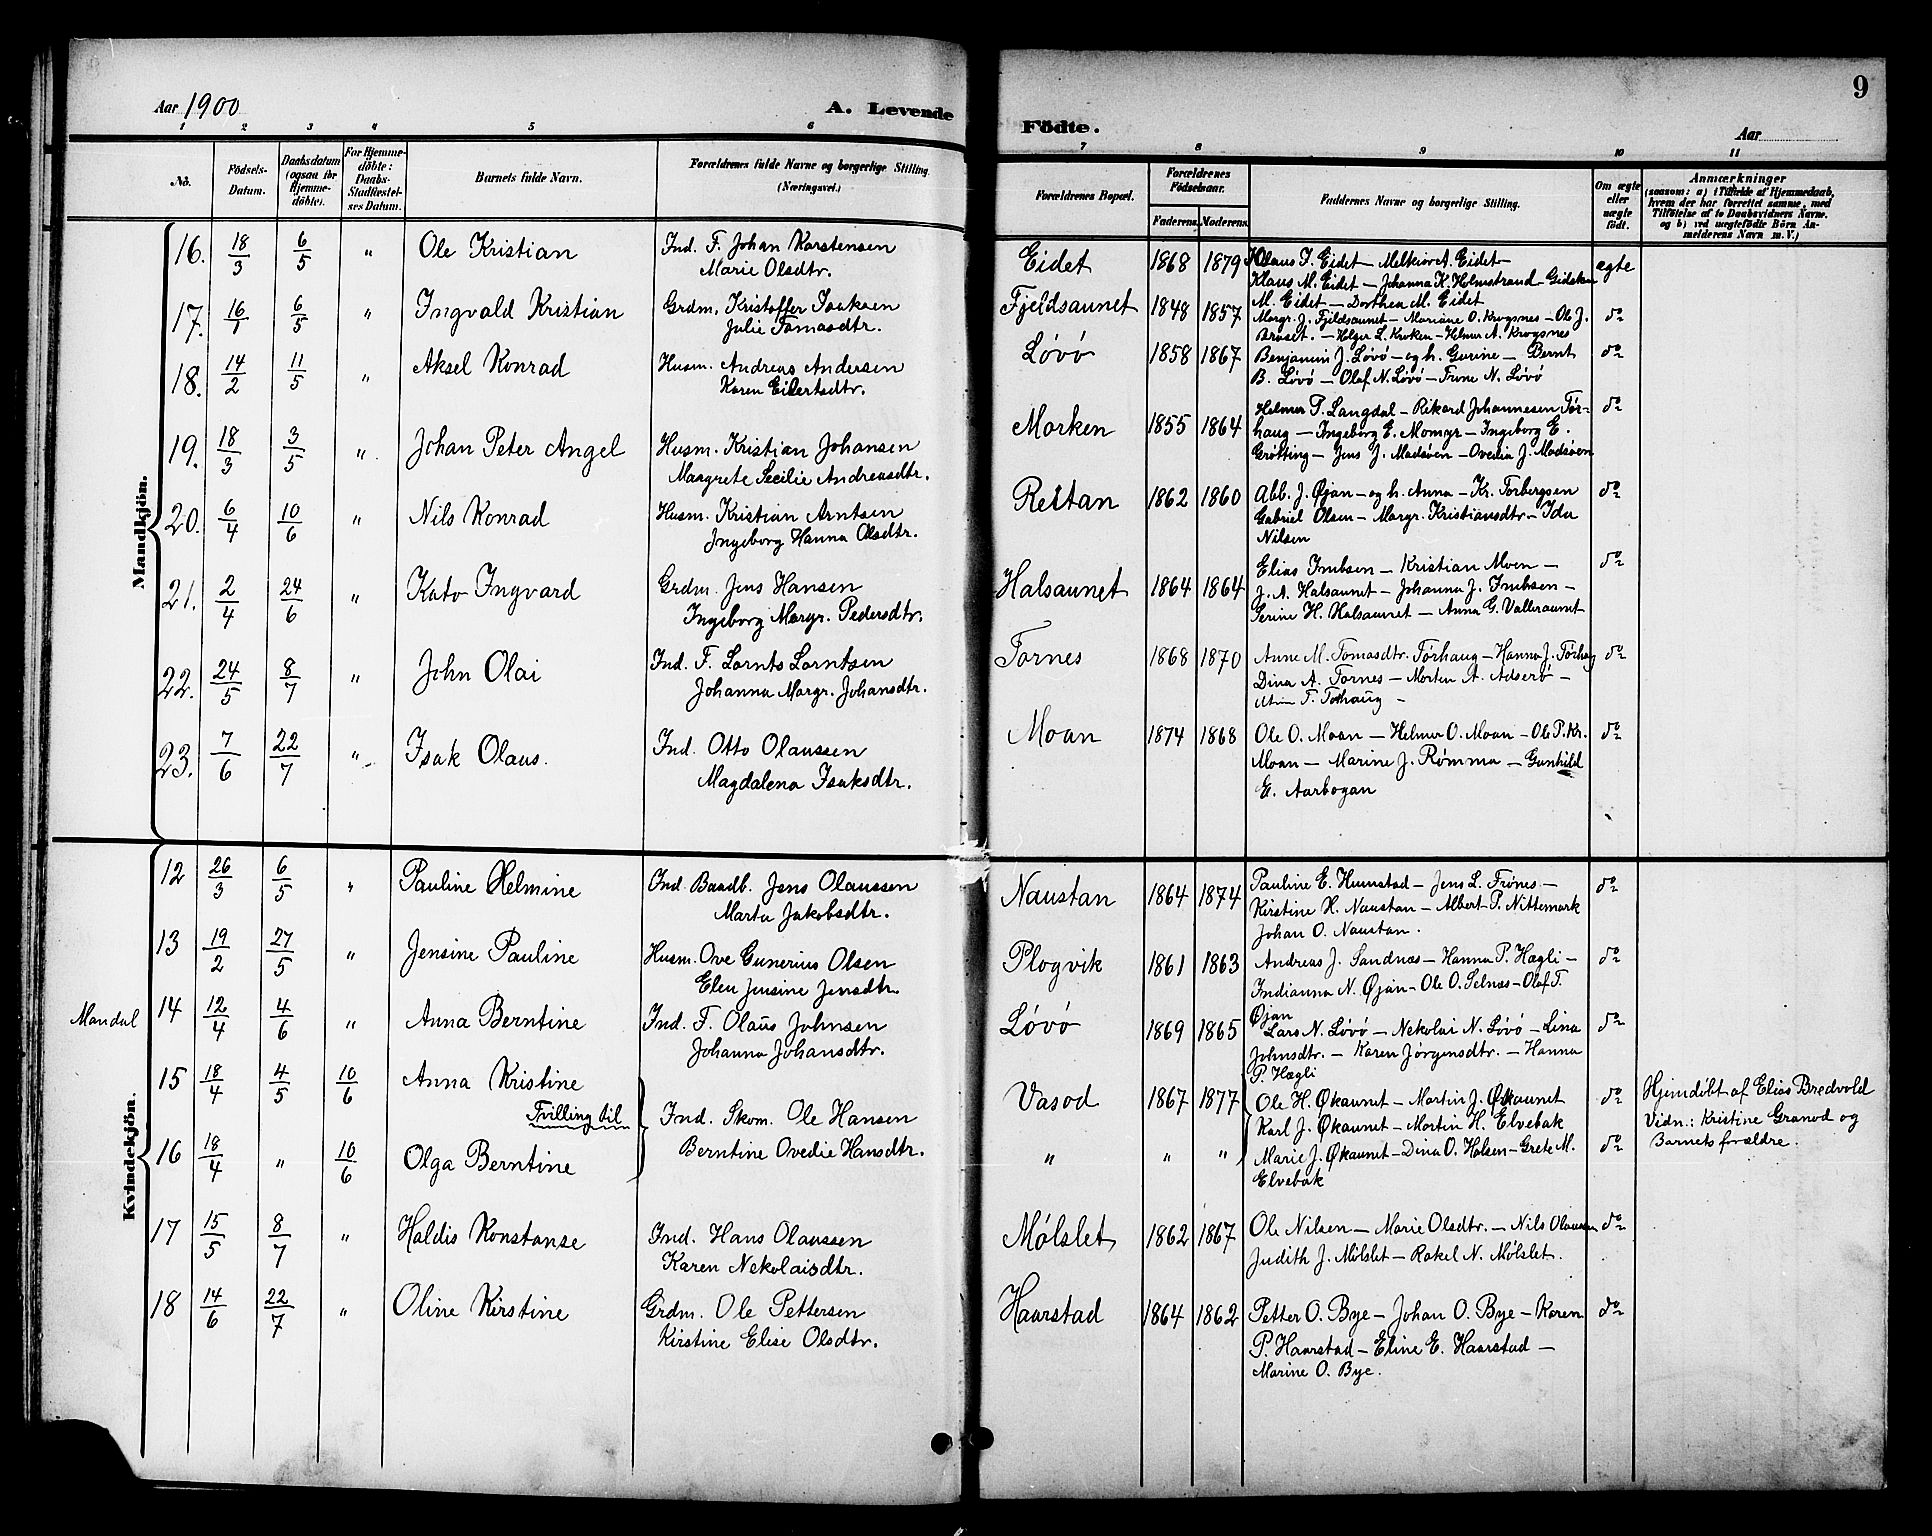 Aar 1900
A. Levende
1 2 3 4 5 6
No.
Födsels-
Datum.
Daabsdatum
(ogsaa for
Hjemme-
döbte).
For Hjemme-
döbte:
Daabs-
Stadfæstel-
ses Datum.
Barnets fulde Navn.
Forældrenes fulde Navne og borgerlige Stilling.
(Næringsvei.)
Mandkjön.
16. 18/3 6/5 " Ole Kristian Ind. F. Johan Karstensen
Marie Olsdtr.
17. 16/1 6/5 " Ingvald Kristian Grdm. Kristoffer Isaksen
Julie Tomasdtr.
18. 14/2 11/5 " Aksel Konrad Husm. Andreas Andersen
Karen Eilertsdtr.
19. 18/3 3/5 " Johan Peter Angel Husm. Kristian Johansen
Margrete Secilie Andreasdtr.
20. 6/4 10/6 " Nils Konrad Husm. Kristian Arntsen
Ingeborg Hanna Olsdtr.
21. 2/4 24/6 " Kato Ingvard Grdm. Jens Hansen
Ingeborg Margr. Pedersdtr.
22. 24/5 8/7 " John Olai Ind. F. Lornts Lorntsen
Johanna Margr. Johansdtr.
23. 7/6 22/7 " Isak Olaus. Ind. Otto Olaussen
Magdalena Isaksdtr.
Kvindekjön.
12 26/3 6/5 " Pauline Helmine Ind. Baadb. Jens Olaussen
Marta Jakobsdtr.
13 19/2 27/5 " Jensine Pauline Husm. Ove Gunerius Olsen
Elen Jensine Jensdtr.
Mandal 14 12/4 4/6 " Anna Berntine Ind. F. Olaus Johnsen
Johanna Johansdtr.
15 18/4 4/5 10/6 Anna Kristine
Tvilling til
Ind. Skom. Ole Hansen
Berntine Ovedie Hansdtr.
16 18/4 " 10/6 Olga Berntine
17 15/5 8/7 " Haldis Konstanse Ind. Hans Olaussen
Karen Nekolaisdtr.
18 14/6 22/7 " Oline Kirstine Grdm. Ole Pettersen
Kirstine Elise Olsdtr.
9
Födte.
Aar
7 8 9 10 11
Forældrenes Bopæl.
Forældrenes
Födselsaar.
Faderens. Moderens.
Faddernes Navne og borgerlige Stilling.
Om ægte
eller
uægte
født.
Anmærkninger
(saasom: a) i Tilfælde af Hjemmedaab,
hvem der har forrettet samme, med
Tilföielse af to Daabsvidners Navne.
og b) ved uægtefödte Börn An-
melderens Navn m. V.)
Eidet 1868 1879 Klaus J. Eidet – Melkior A. Eidet – egte
Klaus M. Eidet – Johanna K. Holmstrand – Gidsken
M. Eidet – Dorthea M. Eidet
Fjeldsaunet 1848 1857 Margr. J. Fjeldsaunet – Mariane O. Krogsnes – Ole J. do
Braset. – Holger L. Kroken – Helmer A. Krogsnes
Løvø 1858 1867 Benjamin J. Løvø – og h. Gurine – Bernt do
B. Løvø – Olaf N. Løvø – Trine N. Løvø
Morken 1855 1864 Helmer P. Langdal – Rikard Johannesen Tør- do
haug – Ingeborg E. Momyr – Ingeborg E.
Grøtting – Jens J. Madsøen – Ovedia J. Madsøen
Reitan 1862 1860 Abb. J. Øjan – og h. Anna – Kr. Torbergsen do
Gabriel Olsen – Margr. Kristiansdtr – Ida
Nilsen
Halsaunet 1864 1864 Elias Imbsen – Kristian Moen – do
J. A. Halsaunet – Johanna J. Imbsen –
Serine H. Halsaunet – Anna G. Valleraunet
Tornes 1868 1870 Anne M. Tomasdtr. Tørhaug – Hanna J. Tørhaug do
Dina A. Tornes – Morten A. Adserø –
T. Torhaug –
Moan 1874 1868 Ole O. Moan – Helmer O. Moan – Ole P. Kr. do
Moan – Marine J. Rømma – Gunhild
E. Aarbogan
Naustan 1864 1874 Pauline E. Humstad – Jens L. Frønes – do
Kirstine H. Naustan – Albert P. Nittemark
Johan O. Naustan.
Plogvik 1861 1863 Andreas J. Sandnæs – Hanna P. Hægli – do
Indianna N. Øjan – Ole O. Selnæs – Olaf T.
Øjan
Løvø 1869 1865 Lars N. Løvø – Nekolai N. Løvø – Lina do
Johnsdtr. – Karen Jørgensdtr. – Hanna
P. Hægli
Vasød 1867 1877 Ole H. Økaunet – Martin J. Økaunet do
Karl J. Økaunet – Martin H. Elvebak
Hjemdøbt af Elias Bredvold
Vidn.: Kristine Granod og
Barnets forældre.
" " " Marie J. Økaunet – Dina O. Halsen – Grete M. do
Elvebak
Mølslet 1862 1867 Ole Nilsen – Marie Olsdtr. – Nils Olaussen do
Judith J. Mølslet – Rakel N. Mølslet.
Haarstad 1864 1862 Petter O. Bye – Johan O. Bye – Karen do
P. Haarstad – Eline E. Haarstad –
Marine O. Bye.